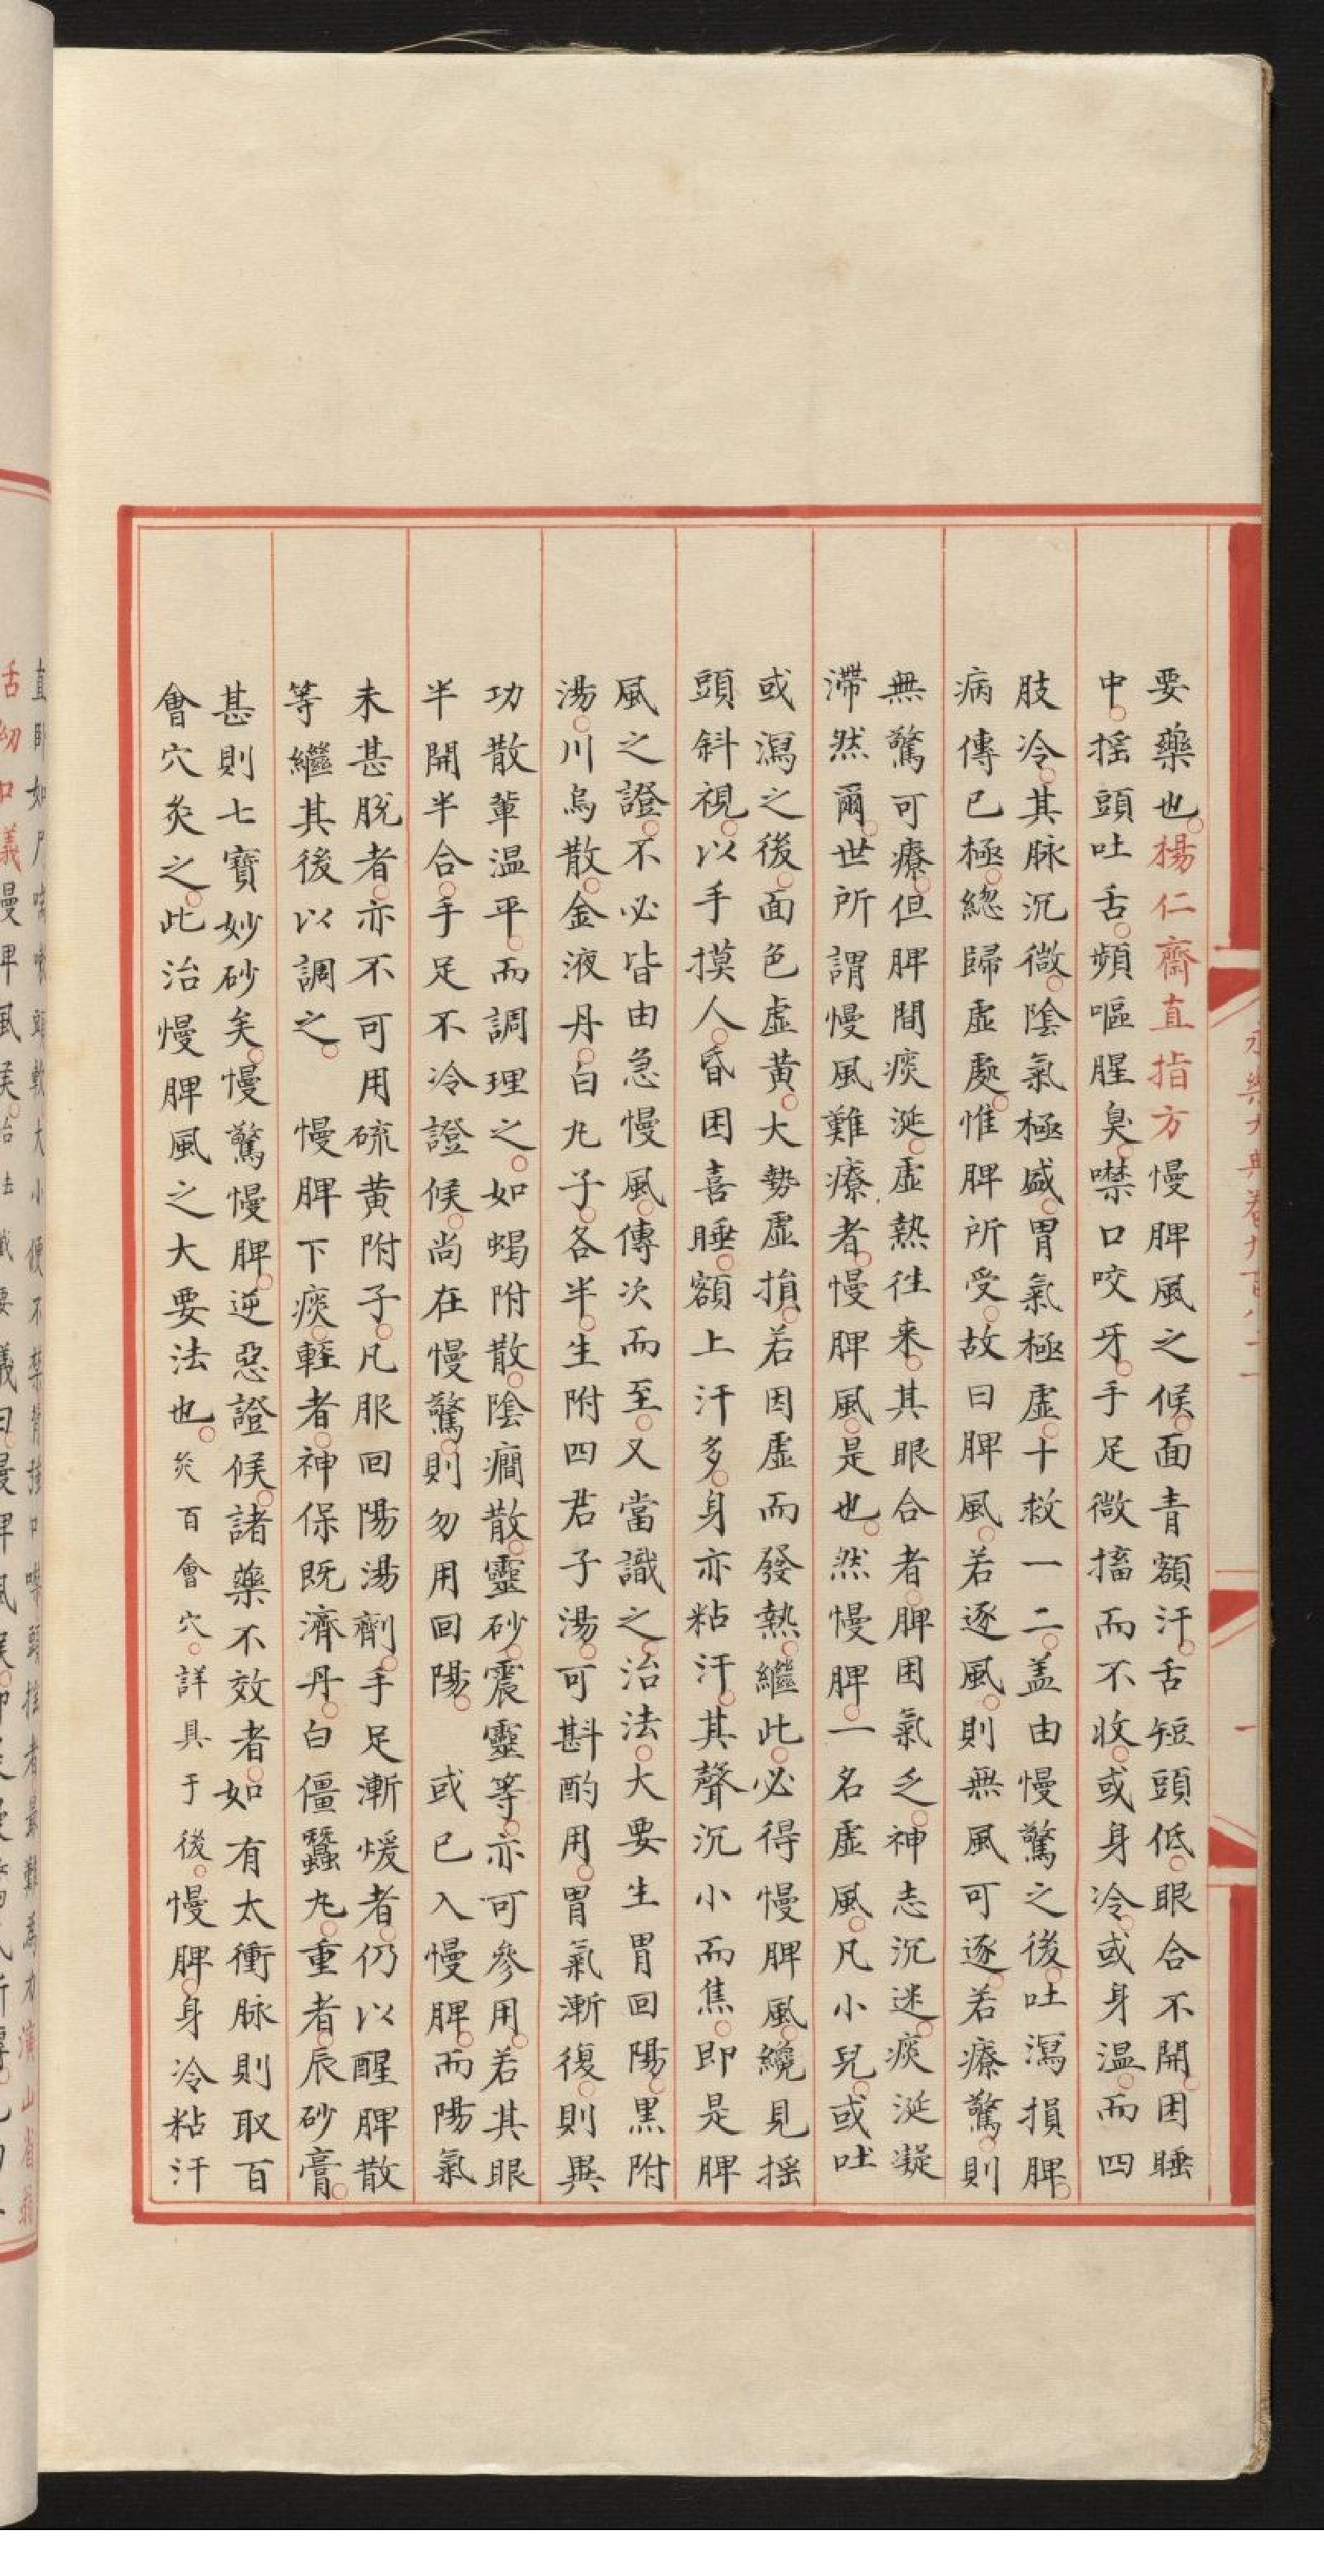 要藥也楊仁齋直指方慢脾風之候面青額汗舌短頭低眼合不開困睡
中搖頭吐舌頻嘔腥臭噤口咬牙手足微搐而不收或身冷或身溫而四
肢冷其脉沉微陰氣極盛胃氣極虛十救一二盖由慢驚之後吐瀉損脾
病傳已極緫歸虛處惟脾所受故曰脾風若逐風則無風可逐若療驚則
無驚可療但脾間痰涎虛熱徃来其眼合者脾困氣乏神志沉迷痰涎凝
滯然爾世所謂慢風難療者慢脾風是也然慢脾一名虛風凡小兒或吐
或瀉之後面色虛黃大勢虛損若因虛而發熱繼此必得慢脾風纔見搖
頭斜視以手摸人昏困喜睡額上汗多身亦粘汗其聲沉小而焦即是脾
風之證不必皆由急慢風傳次而至又當識之治法大要生胃回陽黒附
湯川烏散金液丹白丸子各半生附四君子湯可斟酌用胃氣漸復則異
功散輩温平而調理之如蝎附散陰癎散靈砂震靈等亦可參用若其眼
半開半合手足不冷證候尚在慢驚則勿用回陽 或已入慢脾而陽氣
未甚脫者亦不可用硫黄附子凡服回陽湯劑手足漸煖者仍以醒脾散
等繼其後以調之 慢脾下痰輕者神保既濟丹白僵蠶丸重者辰砂膏
甚則七寶妙砂矣慢驚慢脾逆惡證候諸藥不效者如有太衝脉則取百
會穴灸之此治慢脾風之大要法也灸百會穴詳具于後慢脾身冷粘汗